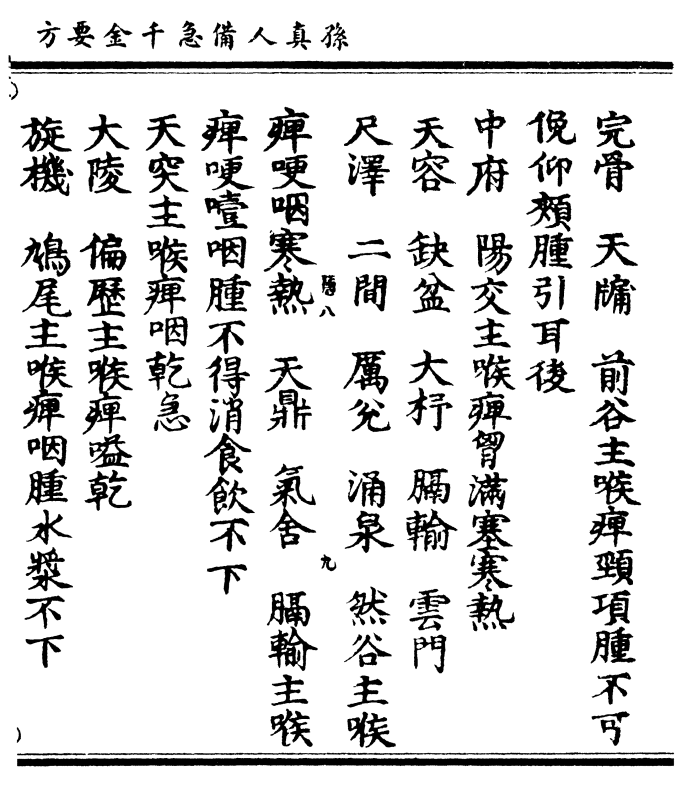 孫真人備急千金要方
完骨 天牖 前谷主喉痺頸項腫不可
俛仰頰腫引耳後
中府 陽交主喉痺胷滿塞寒熱
天容 缺盆 大杼 膈輸 雲門
尺澤 二間 厲兌 涌泉 然谷主喉
痺哽咽寒熱 天鼎 氣舍 膈輸主喉
八
九
痺哽噎咽腫不得消食飲不下
天突主喉痺咽乾急
大陵 偏歷主喉痺嗌乾
旋機 鳩尾主喉痺咽腫水漿不下